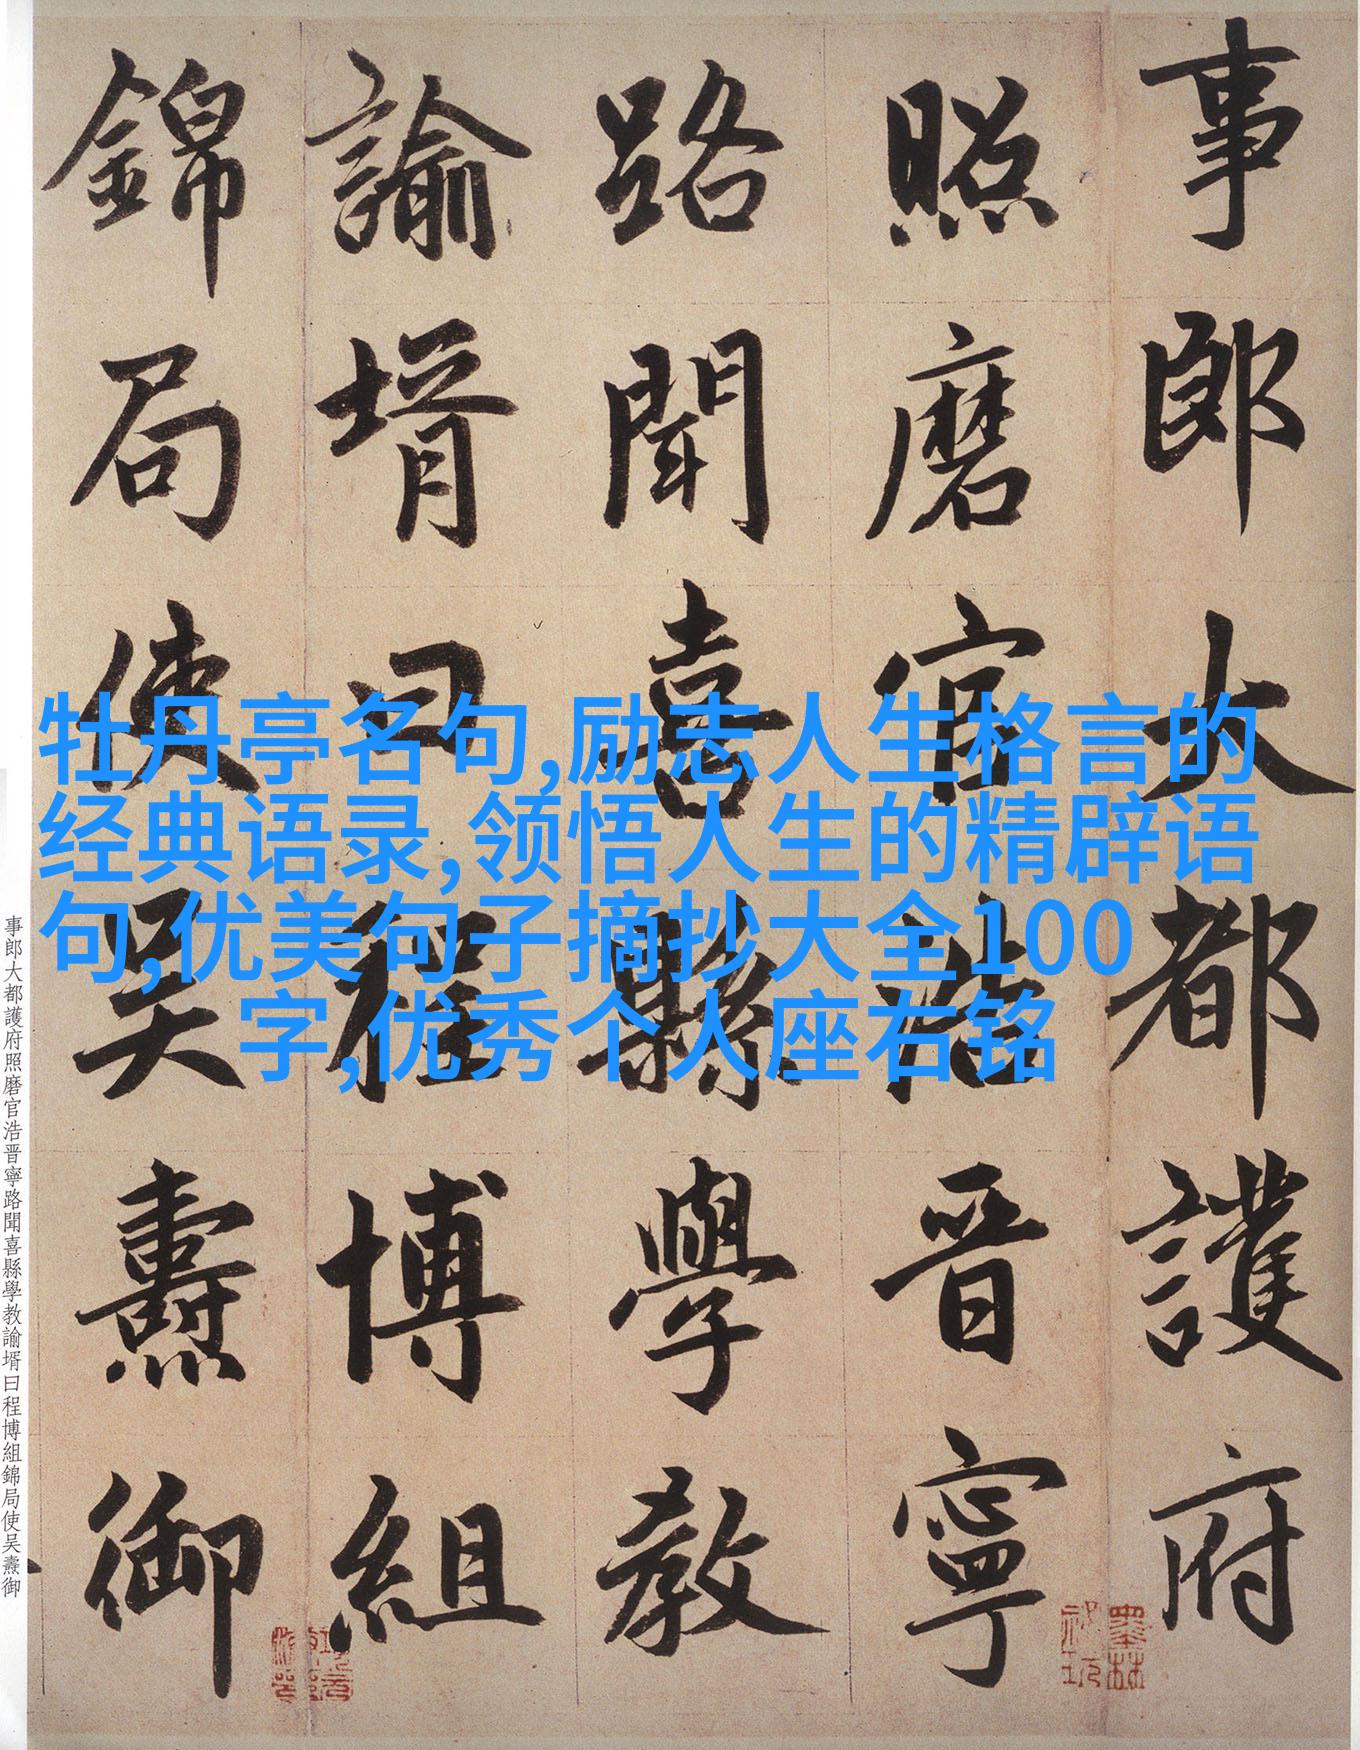 事郎大都護府
照磨官浩晋寧
路聞喜縣學教
諭壻曰程博組
錦局使吴燾御
牡丹亭名句,励志人生格言的
经典语录,领悟人生的精辟语
句,优美句子摘抄大全100
字,优秀个人座右铭
事郎大都護府照磨官浩晋寧路聞喜縣學教諭壻曰程博組錦局使吴燾御